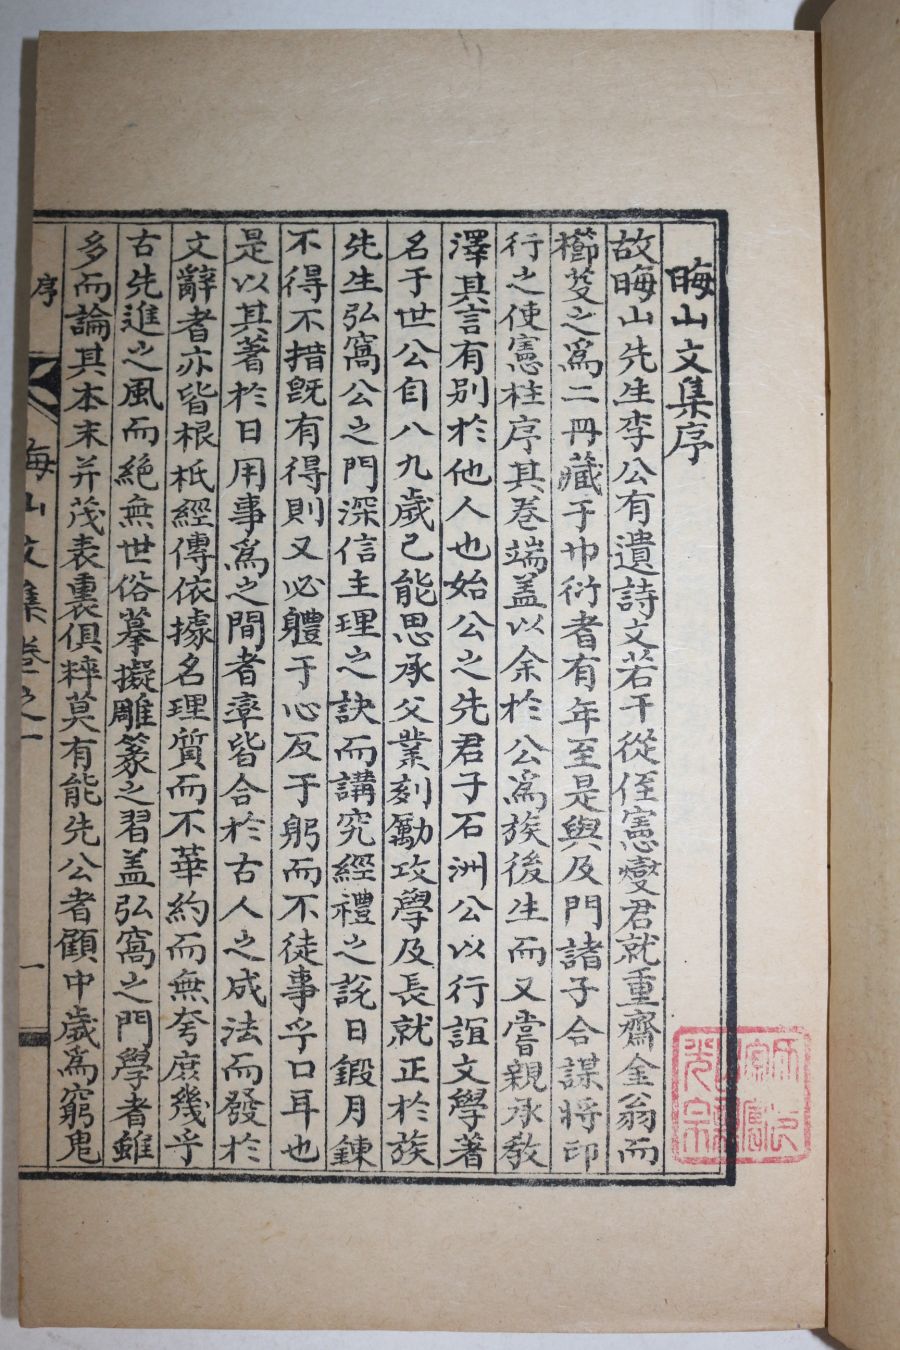 晦山文集序
故晦山先生李公有遺詩文若干從侄憲燮君就重齋金翁而
櫛芟之爲二冊藏于巾衍者有年至是與及門諸子合謀將印
行之使憲柱序其卷端盖以余於公爲族後生而又嘗親承教
澤其言有別於他人也始公之先君子石洲公以行誼文學著
名于世公自八九歲已能思承父業刻勵攻學及長就正於族
先生弘窩公之門深信主理之訣而講究經禮之說日鍛月鍊
不得不措旣有得則又必體于心反于躬而不徒事乎口耳也
是以其著於日用事爲之間者率皆合於古人之成法而發於
文辭者亦皆根柢經傳依據名理質而不華約而無夸庶幾乎
古先進之風而絕無世俗摹擬雕篆之習盖弘窩之門學者雖
多而論其本末幷茂表裏俱粹莫有能先公者顧中歲爲窮鬼
序
晦山文集卷之一
一